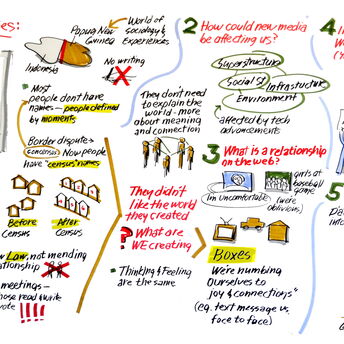 es:
Papua New
Guinea
World of
sociology &
Experiences
Indonesia
No
Writing
• Most
people don't have
names - people defined
by moments
Border dispute →
(census) Now people
have "census" names
Before
Census
After
Census
Law, not mending
lationship
meetings -
hose read & write
vote !!!!
They don't need
to explain the
world - more
about meaning
and connection
They didn't
like the world
they created
? What are
WE creating
• Thinking & Feeling
are the same
2 How could new media
be affecting us?
Superstructure
Social St
Infrastructure
Environment
affected by tech
advancements
3 What is a relationship
on the web?
I'm uncomfortable
girls at
baseball
game
(were
oblivious)
Boxes
We're numbing
Ourselves to
joy & connections"
(eg. text message vs.
face to face)
4
5
Da
info